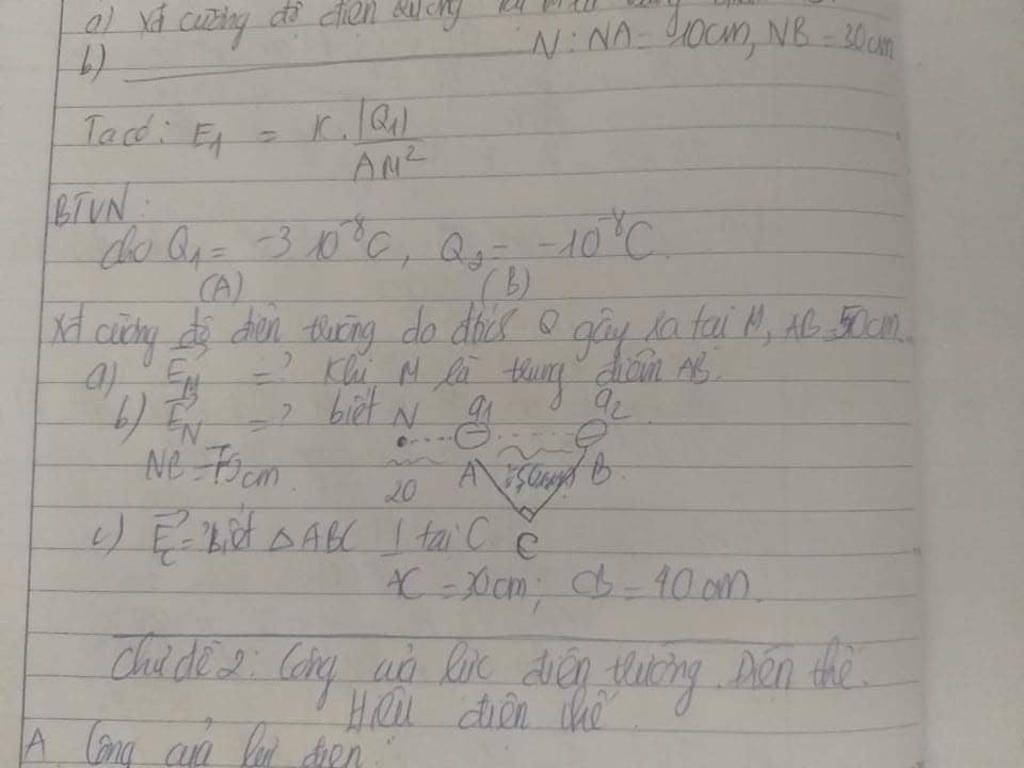 a) Xđ cường độ điện trường tại M
b) N: NA = 90cm, NB = 30cm
Ta có: E1 = K. |Q1| / AM²
BTVN:
cho Q1 = -3 10⁻⁸C, Q2 = -10⁻⁸C.
(A) (B)
Xđ cường độ điện trường do đtích Q gây ra tại M, AB = 50cm.
a) E⃗M = ? Khi M là trung điểm AB.
b) E⃗N = ? biết N q1 q2
NB = 75cm. 20 A 50cm B
c) E⃗C = ? biết ΔABC ⊥ tại C C
AC = 30cm; CB = 40cm.
Chủ đề 2: Công của lực điện trường. Điện thế.
Hiệu điện thế.
A Công của lực điện: